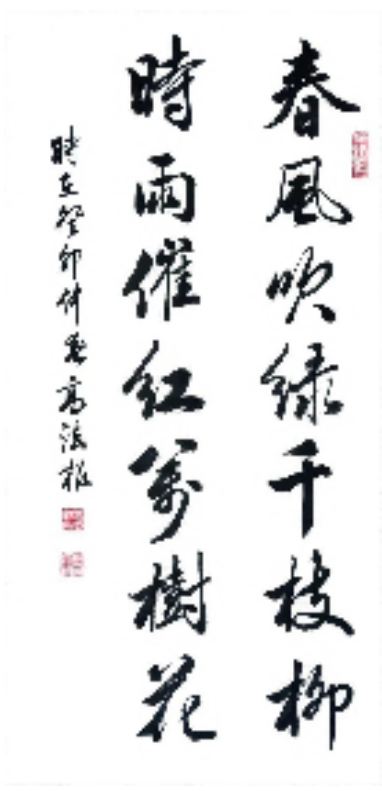 春風吹緑千枝柳
時雨催紅萬樹花
時在癸卯仲春高法根